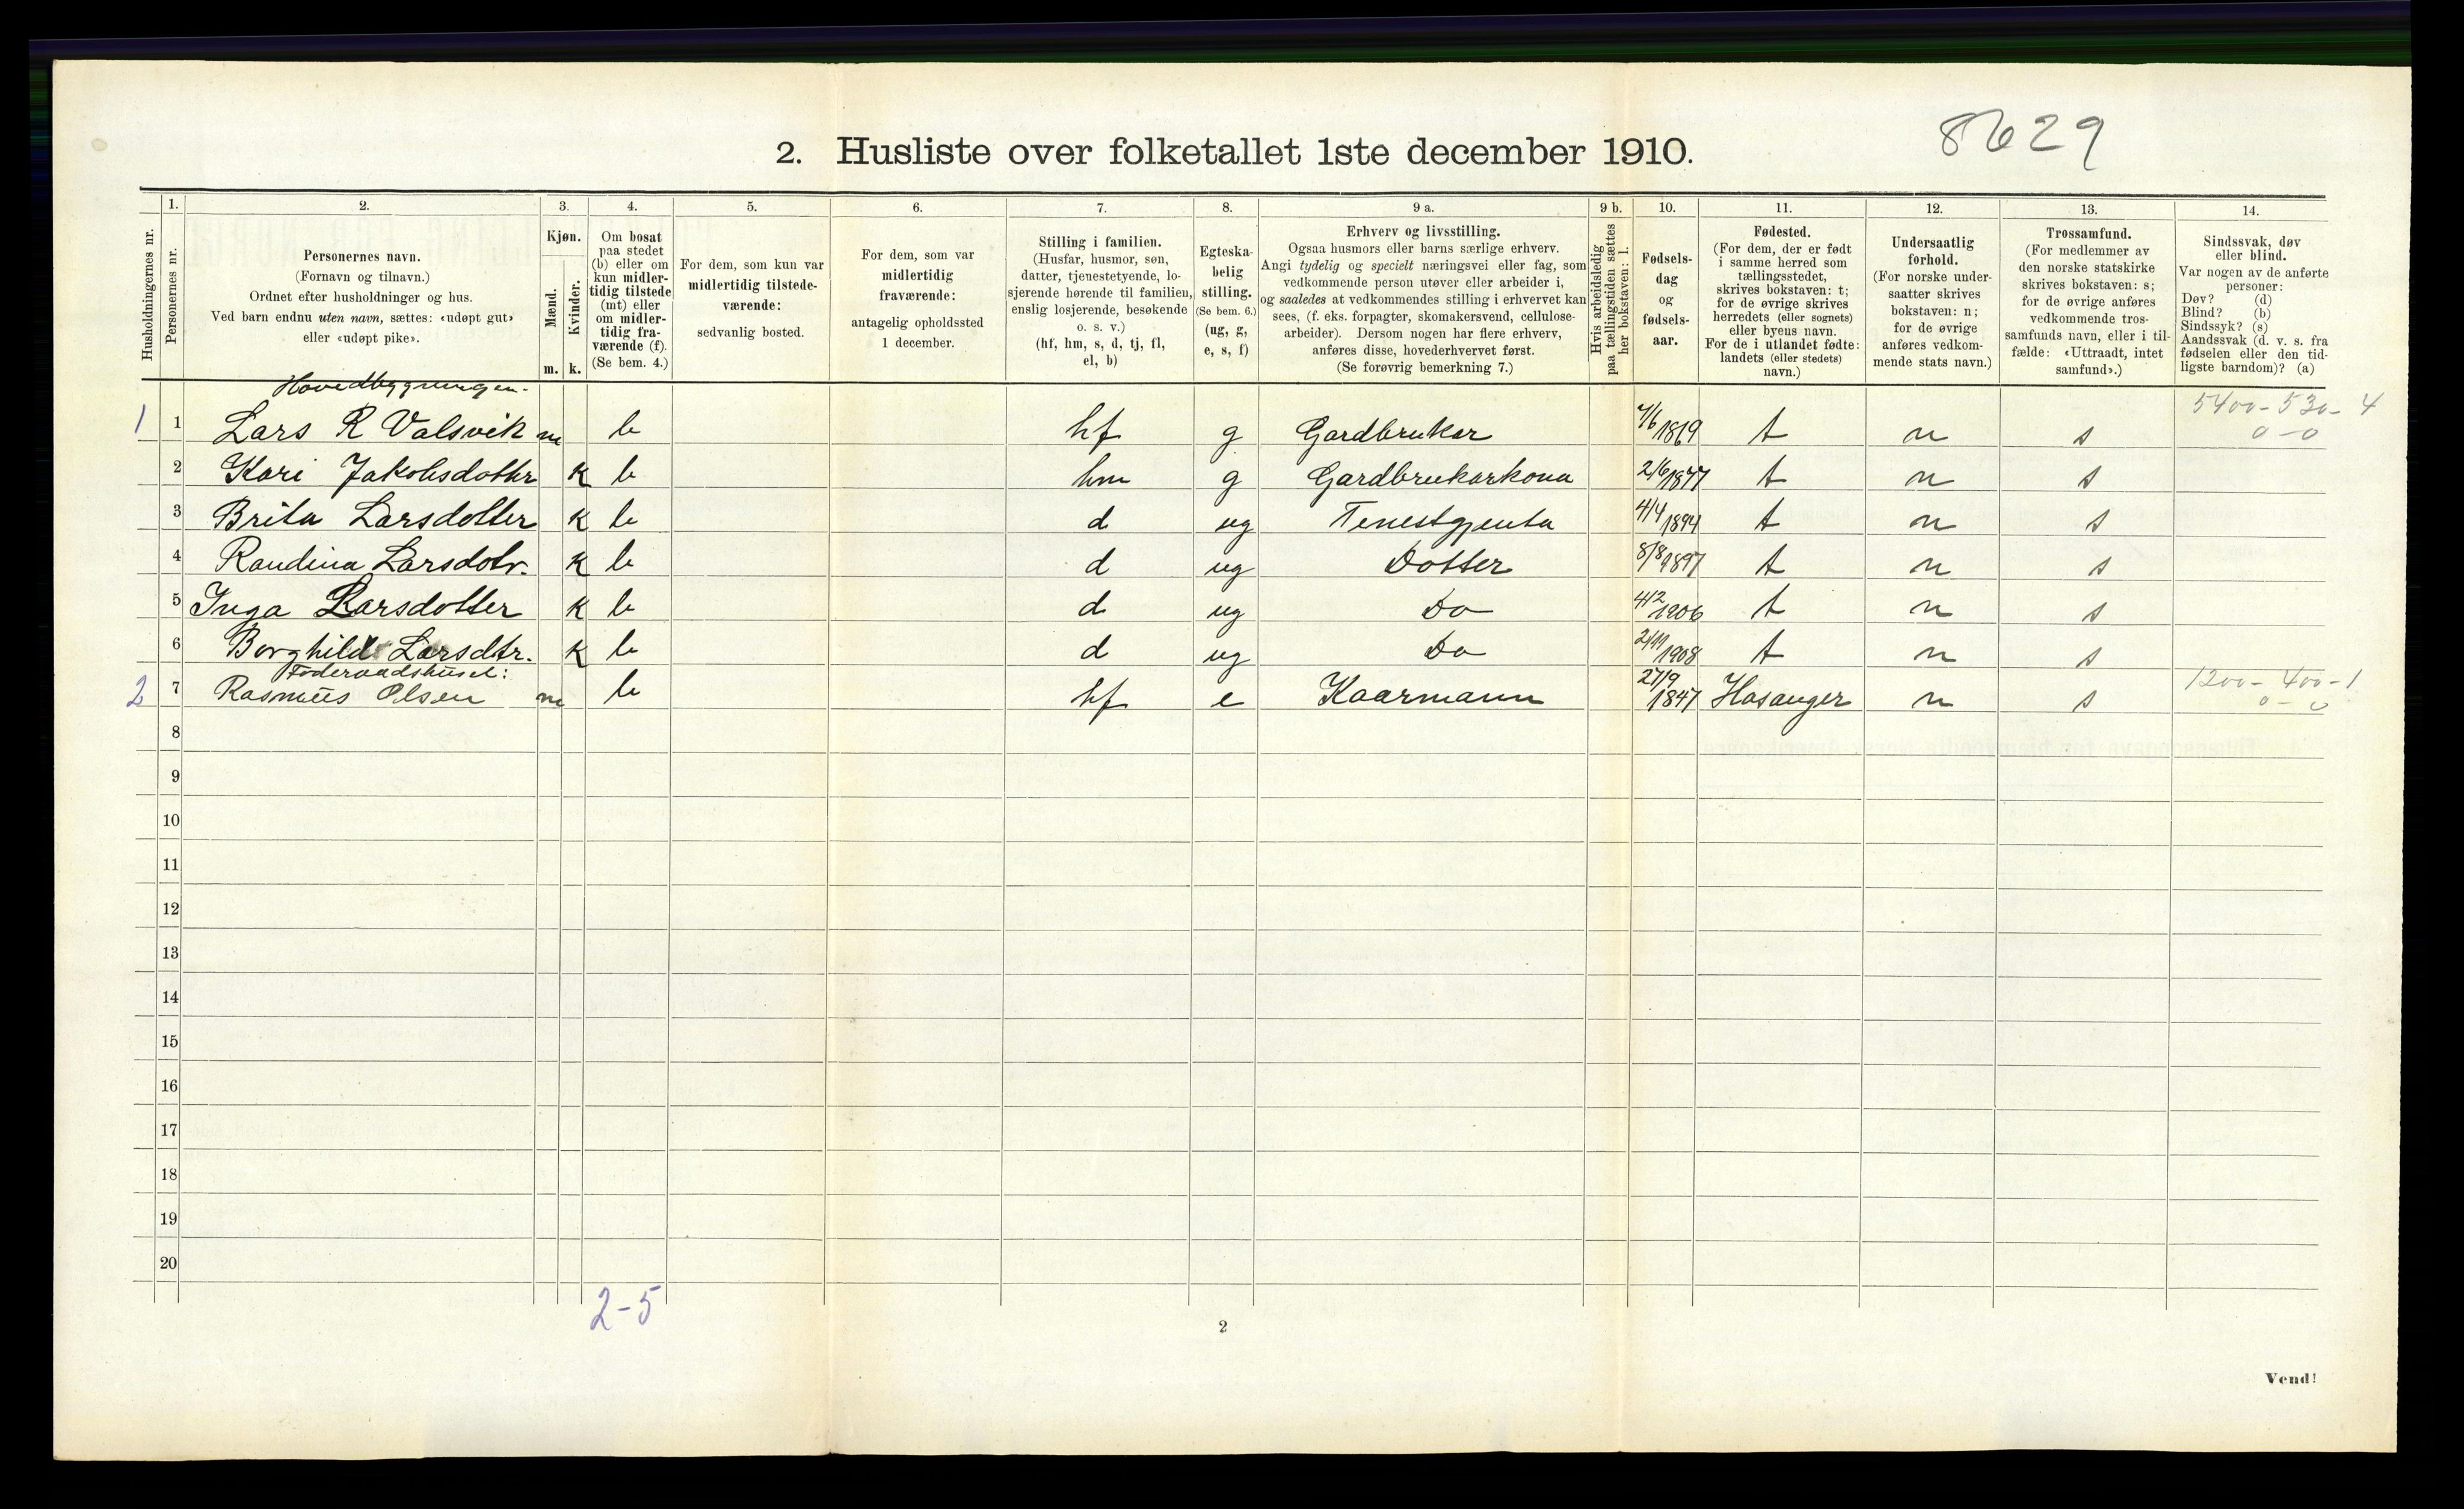 8629
2. Husliste over folketallet 1ste december 1910.
Husholdningernes nr.
1. Personernes nr.
2. Personernes navn.
(Fornavn og tilnavn.)
Ordnet efter husholdninger og hus.
Ved barn endnu uten navn, sættes: «udøpt gut»
eller «udøpt pike».
3. Kjøn.
Mænd. m.
Kvinder. k.
4. Om bosat
paa stedet
(b) eller om
kun midler-
tidig tilstede
(mt) eller
om midler-
tidig fra-
værende (f).
(Se bem. 4.)
5. For dem, som kun var
midlertidig tilstede-
værende:
sedvanlig bosted.
6. For dem, som var
midlertidig
fraværende:
antagelig opholdssted
1 december.
7. Stilling i familien.
(Husfar, husmor, søn,
datter, tjenestetyende, lo-
sjerende hørende til familien,
enslig losjerende, besøkende
o. s. v.)
(hf, hm, s, d, tj, fl,
el, b)
8. Egteska-
belig
stilling.
(Se bem. 6.)
(ug, g,
e, s, f)
9 a. Erhverv og livsstilling.
Ogsaa husmors eller barns særlige erhverv.
Angi tydelig og specielt næringsvei eller fag, som
vedkommende person utøver eller arbeider i,
og saaledes at vedkommendes stilling i erhvervet kan
sees, (f. eks. forpagter, skomakersvend, cellulose-
arbeider). Dersom nogen har flere erhverv,
anføres disse, hovederhvervet først.
(Se forøvrig bemerkning 7.)
9 b. Hvis arbeidsledig
paa tællingstiden sættes
her bokstaven: l.
10. Fødsels-
dag
og
fødsels-
aar.
11. Fødested.
(For dem, der er født
i samme herred som
tællingsstedet,
skrives bokstaven: t;
for de øvrige skrives
herredets (eller sognets)
eller byens navn.
For de i utlandet fødte:
landets (eller stedets)
navn.)
12. Undersaatlig
forhold.
(For norske under-
saatter skrives
bokstaven: n;
for de øvrige
anføres vedkom-
mende stats navn.)
13. Trossamfund.
(For medlemmer av
den norske statskirke
skrives bokstaven: s;
for de øvrige anføres
vedkommende tros-
samfunds navn, eller i til-
fælde: «Uttraadt, intet
samfund».)
14. Sindssvak, døv
eller blind.
Var nogen av de anførte
personer:
Døv? (d)
Blind? (b)
Sindssyk? (s)
Aandssvak (d. v. s. fra
fødselen eller den tid-
ligste barndom)? (a)
Hovedbygningen.
5400 - 530 - 4
1 1 Lars R Valsvik m b hf g Gardbrukar 1869 t n s 0 - 0
2 Kari Jakobsdotter k b hm g Gardbrukarkona 2/6 1877 t n s
3 Brita Larsdotter k b d ug Tenestgjenta 4/4 1894 t n s
4 Raudina Larsdotr. k b d ug Dotter 8/8 1897 t n s
5 Inga Larsdotter k b d ug Do 4/2 1906 t n s
6 Borghild Larsdtr. k b d ug Do 2/11 1908 t n s
Føderaadshuset:
1200 - 400 - 1
2 7 Rasmus Olsen m b hf e Kaarmann 27/9 1847 Hosanger n s 0 - 0
8
9
10
11
12
13
14
15
16
17
18
19
20
2-5
2
Vend!